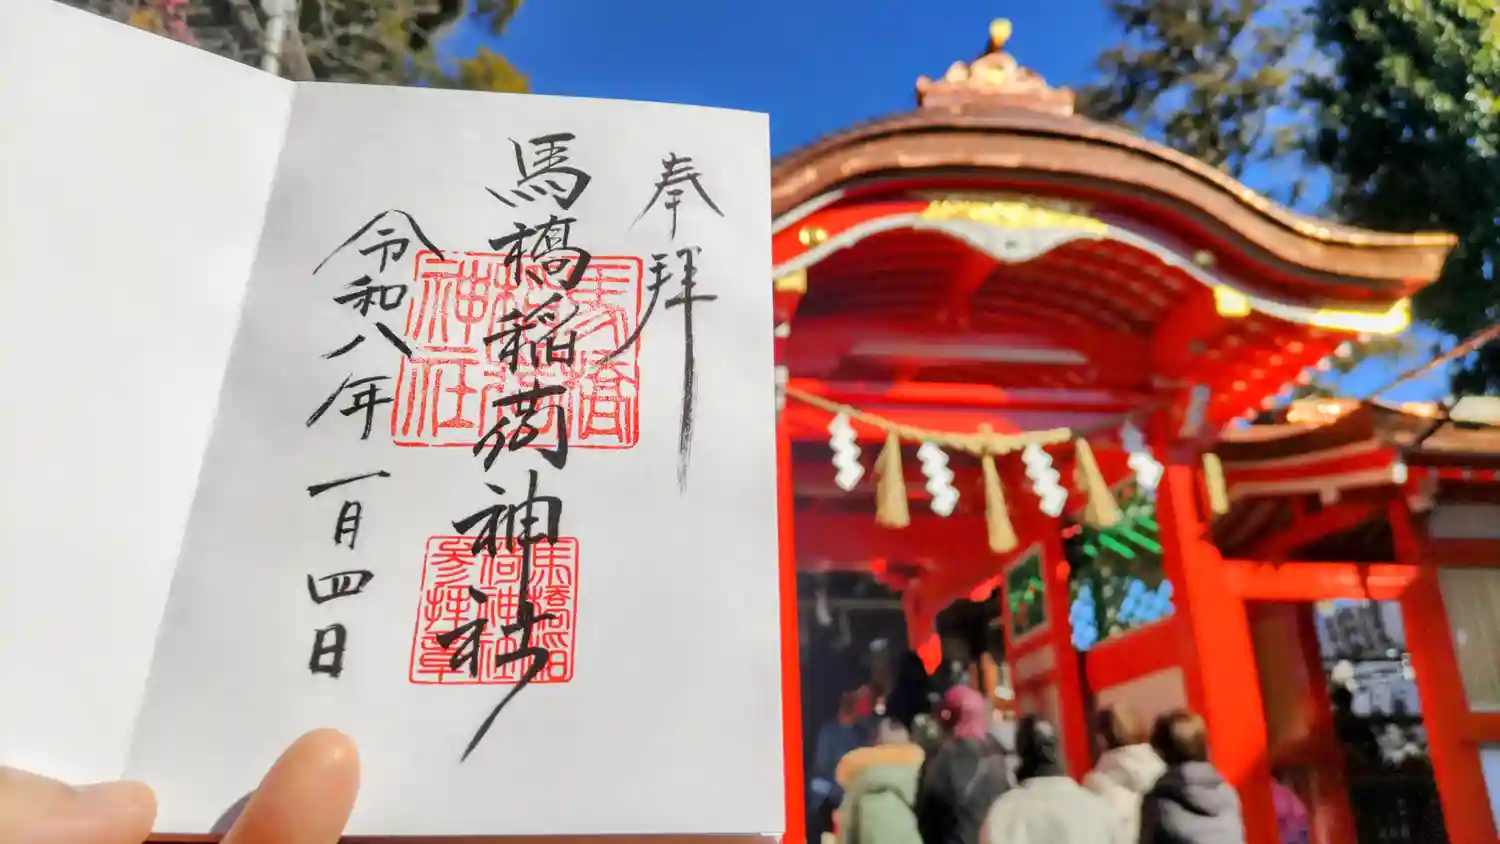 奉拝
馬橋稲荷神社
令和八年一月四日
馬橋稲荷神社
馬橋稲荷神社参拝章